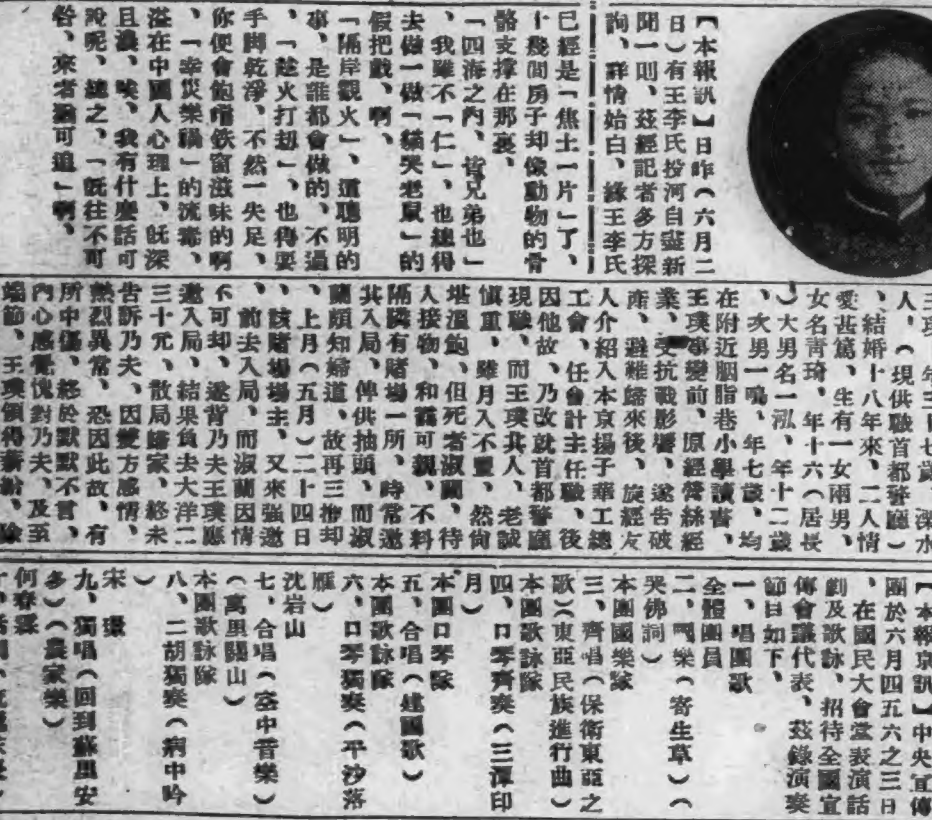 【本報訊】日昨（六月二
日）有王李氏投河自盡新
聞一則、茲經記者多方探
詢、詳情始白、緣王李氏
已經是「焦土一片」了、
十幾間房子却像動物的骨
骼支撑在那裏、
「四海之內、皆兄弟也」
、我雖不「仁」、也總得
去做一做「貓哭老鼠」的
假把戲、啊、
「隔岸觀火」、這聰明的
事、是誰都會做的、不過
、「趁火打刧」、也得要
手脚乾淨、不然一失足、
你便會飽嚐鉄窗滋味的啊
、「幸災樂禍」的流毒、
溢在中國人心理上、旣深
且濃、唉、我有什麼話可
說呢、總之、「旣往不可
咎、來者猶可追」啊、
人、（現供職首都警廳）
、結婚十八年來、二人情
愛甚篤、生有一女兩男、
女名靑琦、年十六（居長
）大男名一泓、年十二歲
、次男一鳴、年七歲、均
在附近胭脂巷小學讀書、
王璞事變前、原經營絲經
業、受抗戰影響、遂告破
產、避難歸來後、旋經友
人介紹入本京揚子華工總
工會、任會計主任職、後
因他故、乃改就首都警廳
現職、而王璞其人、老誠
慎重、雖月入不豐、然尙
堪溫飽、但死者淑蘭、待
人接物、和靄可親、不料
隔隣有賭場一所、時常邀
共入局、俾供抽頭、而淑
蘭頗知婦道、故再三推却
、上月（五月）二十四日
、該賭場場主、又來强邀
、前去入局、而淑蘭因情
不可却、遂背乃夫王璞應
邀入局、結果負去大洋二
三十元、散局歸家、終未
吿訴乃夫、因雙方感情、
熱烈異常、恐因此故、有
所中傷、終於默默不言、
內心感覺愧對乃夫、及至
端節、王璞領得薪給、除
【本報京訊】中央宣傳
團於六月四五六之三日
、在國民大會堂表演話
劇及歌詠、招待全國宣
傳會議代表、茲錄演奏
節目如下、
一、唱團歌
全體團員
二、國樂（寄生草）（
哭佛詞）
本團國樂隊
三、齊唱（保衛東亞之
歌）（東亞民族進行曲）
本團歌詠隊
四、口琴齊奏（三潭印
月）
本團口琴隊
五、合唱（建國歌）
本團歌詠隊
六、口琴獨奏（平沙落
雁）
沈岩山
七、合唱（空中音樂）
（萬里關山）
本團歌詠隊
八、二胡獨奏（病中吟
）
宋
九、獨唱（回到蘇里安
多）（農家樂）
何春霖